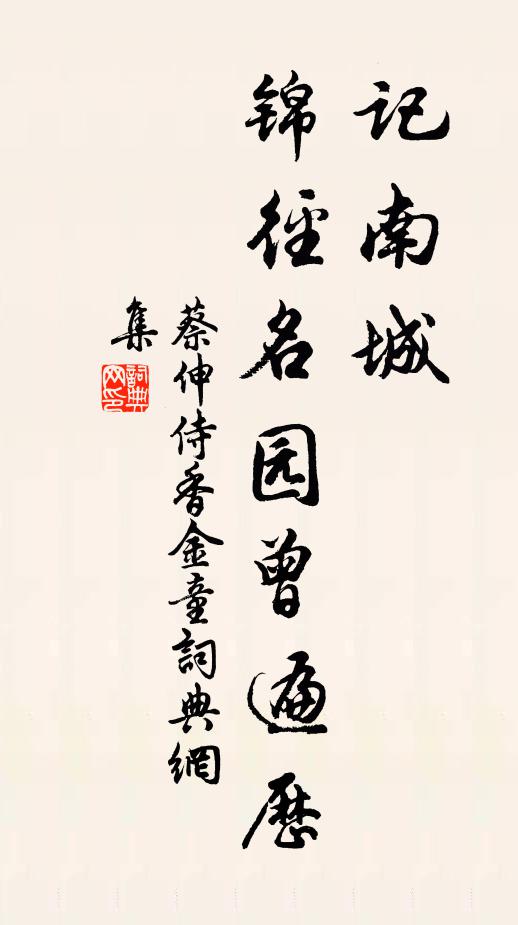 记南城
锦径名园曾遍历
蔡伸侍香金童詞典網
集
詞典網印